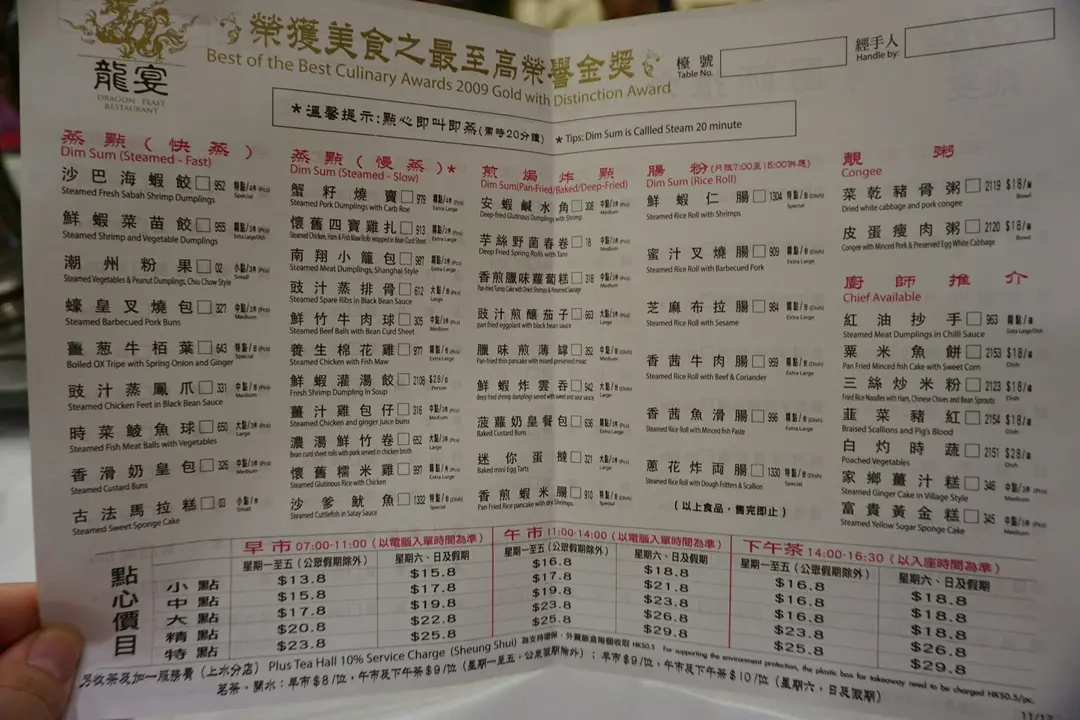 龍宴
DRAGON FEAST
RESTAURANT
榮獲美食之最至高榮譽金獎
Best of the Best Culinary Awards 2009 Gold with Distinction Award
檯號
Table No.
經手人
Handle by:
*溫馨提示:點心即叫即蒸(需時20分鐘) * Tips: Dim Sum is Callled Steam 20 minute
蒸點(快蒸)
Dim Sum (Steamed - Fast)
沙巴海蝦餃 952 特點/4件(Pcs)
Steamed Fresh Sabah Shrimp Dumplings Special
鮮蝦菜苗餃 955
Steamed Shrimp and Vegetable Dumplings
潮州粉果 02 小點/件(Pcs)
Steamed Vegetables & Peanut Dumplings, Chiu Chow Style Small
蠔皇叉燒包 327 中點/3件(Pcs)
Steamed Barbecued Pork Buns Medium
薑葱牛栢葉 643 特點/
Boiled OX Tripe with Spring Onion and Ginger Special
豉汁蒸鳳爪 331 中點/
Steamed Chicken Feet in Black Bean Sauce Medium
時菜鯪魚球 650 大點/3件(Pcs)
Steamed Fish Meat Balls with Vegetables Large
香滑奶皇包 326 中點/3件(Pcs)
Steamed Custard Buns Medium
古法馬拉糕 03 小點/
Steamed Sweet Sponge Cake Small
蒸點(慢蒸)*
Dim Sum (Steamed - Slow)
蟹籽燒賣 979 精點/4件(Pcs)
Steamed Pork Dumplings with Carb Roe Extra Large
懷舊四寶雞扎 913
Steamed Chicken, Ham & Fish Maw Rolls wrapped in Bean Curd Sheet Extra Large
南翔小籠包 987
Steamed Meat Dumplings, Shanghai Style Extra Large
豉汁蒸排骨 612 大點/
Steamed Spare Ribs in Black Bean Sauce Large
鮮竹牛肉球 305 中點/3件(Pcs)
Steamed Beef Balls with Bean Curd Sheet Medium
養生棉花雞 977 精點/
Steamed Chicken with Fish Maw Extra Large
鮮蝦灌湯餃 2108 $28/
Fresh Shrimp Dumpling In Soup Person
薑汁雞包仔 316 中點/3件(Pcs)
Steamed Chicken and ginger juice buns Medium
濃湯鮮竹卷 652 大點/3件(Pcs)
Bean curd sheet rolls with pork served in chicken broth Large
懷舊糯米雞 997
Steamed Glutinous Rice with Chicken Extra Large
沙爹魷魚 1332 特點/
Steamed Cuttlefish in Satay Sauce Special
煎焗炸點
Dim Sum(Pan-Fried/Baked/Deep-Fried)
安蝦鹹水角 308 中點/3件(Pcs)
Deep-fried Glutinous Dumplings with Shrimp Medium
芋絲野菌春卷 18
Deep Fried Spring Rolls with Taro
香煎臘味蘿蔔糕 318 中點/3件(Pcs)
Pan-fried Turnip Cake with Dried Shrimps & Preserved Sausage Medium
豉汁煎釀茄子 663 大點/3件(Pcs)
pan fried eggplant with black bean sauce Large
臘味煎薄罉 352 中點/
Pan fried thin pancake with mixed preserved meat Medium
鮮蝦炸雲吞 942
deep fried shrimp dumplings served with sweet and sour sauce
菠蘿奶皇餐包 636
Baked Custard Buns Large
迷你蛋撻 321
Baked mini Egg Tarts Large
香煎蝦米腸 910 特點/
Pan Fried Rice pancake with dry Shrimps Special
腸粉(只限7:00至15:00供應)
Dim Sum (Rice Roll)
鮮蝦仁腸 1304 特點/
Steamed Rice Roll with Shrimps Special
蜜汁叉燒腸 909 精點/
Steamed Rice Roll with Barbecued Pork Extra Large
芝麻布拉腸 984 精點/
Steamed Rice Roll with Sesame Extra Large
香茜牛肉腸 959 精點/
Steamed Rice Roll with Beef & Coriander Extra Large
香茜魚滑腸 996 精點/
Steamed Rice Roll with Minced fish Paste Extra Large
蔥花炸両腸 1330 特點/
Steamed Rice Roll with Dough Fritters & Scallion Special
(以上食品,售完即止)
靚粥
Congee
菜乾豬骨粥 2119 $18/
Dried white cabbage and pork congee Bowl
皮蛋瘦肉粥 2120 $18/
Congee with Minced Pork & Preserved Egg White Cabbage Bowl
廚師推介
Chief Available
紅油抄手 963
Steamed Meat Dumplings in Chilli Sauce
粟米魚餅 2153 $18/
Pan Fried Minced fish Cake with Sweet Corn Dish
三絲炒米粉 2123 $18/
Fried Rice Noodles with Ham, Chinese Chives and Bean Sprouts Dish
韮菜豬紅 2154 $18/
Braised Scallions and Pig's Blood Dish
白灼時蔬 2151 $28/
Poached Vegetables Dish
家鄉薑汁糕 346 中點/
Steamed Ginger Cake in Village Style Medium
富貴黃金糕 345 中點/
Steamed Yellow Sugar Sponge Cake Medium
點心價目
早市 07:00-11:00 (以電腦入單時間為準) 午市 11:00-14:00 (以電腦入單時間為準) 下午茶 14:00-16:30 (以入座時間為準)
星期一至五(公眾假期除外) 星期六、日及假期 星期一至五(公眾假期除外) 星期六、日及假期 星期一至五(公眾假期除外) 星期六、日及假期
小點 $13.8 $15.8 $16.8 $18.8 $16.8 $18.8
中點 $15.8 $17.8 $17.8 $21.8 $16.8 $18.8
大點 $17.8 $19.8 $19.8 $23.8 $16.8 $18.8
精點 $20.8 $22.8 $23.8 $26.8 $23.8 $26.8
特點 $23.8 $25.8 $25.8 $29.8 $25.8 $29.8
另收茶及加一服務費(上水分店) Plus Tea Hall 10% Service Charge (Sheung Shui) 為支持環保,外賣飯盒每個收取 HK$0.5 For supporting the environment protection, the plastic box for takeaway need to be charged HK$0.5/pc.
茗茶、開水:早市$8/位,午市及下午茶$9/位(星期一至五,公眾假期除外);早市$9/位,午市及下午茶$10/位(星期六,日及假期)